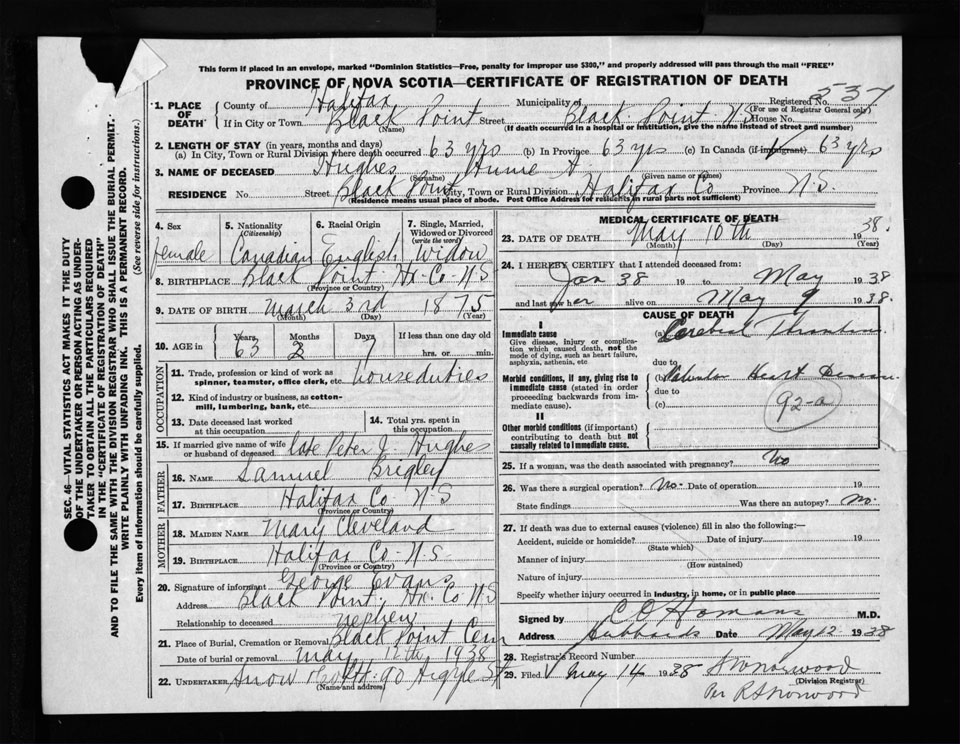 This form if placed in an envelope, marked "Dominion Statistics—Free, penalty for improper use $300," and properly addressed will pass through the mail "FREE"
PROVINCE OF NOVA SCOTIA—CERTIFICATE OF REGISTRATION OF DEATH
SEC. 46—VITAL STATISTICS ACT MAKES IT THE DUTY
OF THE UNDERTAKER OR PERSON ACTING AS UNDER-
TAKER TO OBTAIN ALL THE PARTICULARS REQUIRED
IN THE "CERTIFICATE OF REGISTRATION OF DEATH"
AND TO FILE THE SAME WITH THE DIVISION REGISTRAR WHO SHALL ISSUE THE BURIAL PERMIT.
WRITE PLAINLY WITH UNFADING INK. THIS IS A PERMANENT RECORD.
Every item of information should be carefully supplied. (See reverse side for instructions.)
1. PLACE OF DEATH
County of Halifax Municipality of Registered No. 537
(For use of Registrar General only)
If in City or Town Black Point Street Black Point N.S House No.
(Name) (If death occurred in a hospital or institution, give the name instead of street and number)
2. LENGTH OF STAY (in years, months and days)
(a) In City, Town or Rural Division where death occurred 63 yrs (b) In Province 63 yrs (c) In Canada (if immigrant) 63 yrs
3. NAME OF DECEASED Hughes A
(Surname) (Given name or names)
RESIDENCE No. Street Black Point City, Town or Rural Division Halifax Co Province N.S.
(Residence means usual place of abode. Post Office Address for residents in rural parts not sufficient)
4. Sex female
5. Nationality (Citizenship) Canadian
6. Racial Origin English
7. Single, Married, Widowed or Divorced (write the word) Widow
8. BIRTHPLACE Black Point Hx-Co-N S
(Province or Country)
9. DATE OF BIRTH March 3rd 1875
(Month) (Day) (Year)
10. AGE in Years 63 Months 2 Days 7 If less than one day old hrs. or min.
OCCUPATION
11. Trade, profession or kind of work as spinner, teamster, office clerk, etc. house duties
12. Kind of industry or business, as cotton-mill, lumbering, bank, etc.
13. Date deceased last worked at this occupation
14. Total yrs. spent in this occupation
15. If married give name of wife or husband of deceased late Peter J. Hughes
FATHER
16. NAME Samuel Brigley
17. BIRTHPLACE Halifax Co-N-S
(Province or Country)
MOTHER
18. MAIDEN NAME Mary Cleveland
19. BIRTHPLACE Halifax Co-N.S.
(Province or Country)
20. Signature of informant George Evans
Address Black Point, Hx. Co N S
Relationship to deceased nephew
21. Place of Burial, Cremation or Removal Black Point Cem
Date of burial or removal May 12th 1938
22. UNDERTAKER Snow 90 Argyle St
(Name and address)
MEDICAL CERTIFICATE OF DEATH
23. DATE OF DEATH May 10th 1938.
(Month) (Day) (Year)
24. I HEREBY CERTIFY that I attended deceased from:
Jan 38 19 to May 1938
and last saw her alive on May 9 1938.
CAUSE OF DEATH
I
Immediate cause
Give disease, injury or complication which caused death, not the mode of dying, such as heart failure, asphyxia, asthenia, etc
(a) Cerebral
due to
Morbid conditions, if any, giving rise to immediate cause (stated in order proceeding backwards from immediate cause).
(b) Valvular Heart Disease
due to
(c) 92-a
II
Other morbid conditions (if important) contributing to death but not causally related to immediate cause.
25. If a woman, was the death associated with pregnancy? No
26. Was there a surgical operation? No. Date of operation 19
State findings Was there an autopsy? No.
27. If death was due to external causes (violence) fill in also the following:—
Accident, suicide or homicide? Date of injury 19
(State which)
Manner of injury
(How sustained)
Nature of injury
Specify whether injury occurred in industry, in home, or in public place
Signed by C O Homans M.D.
Address Hubbards Date May 12 1938
28. Registrar's Record Number
29. Filed May 14 1938 Norwood
(Division Registrar)
Per R S Norwood